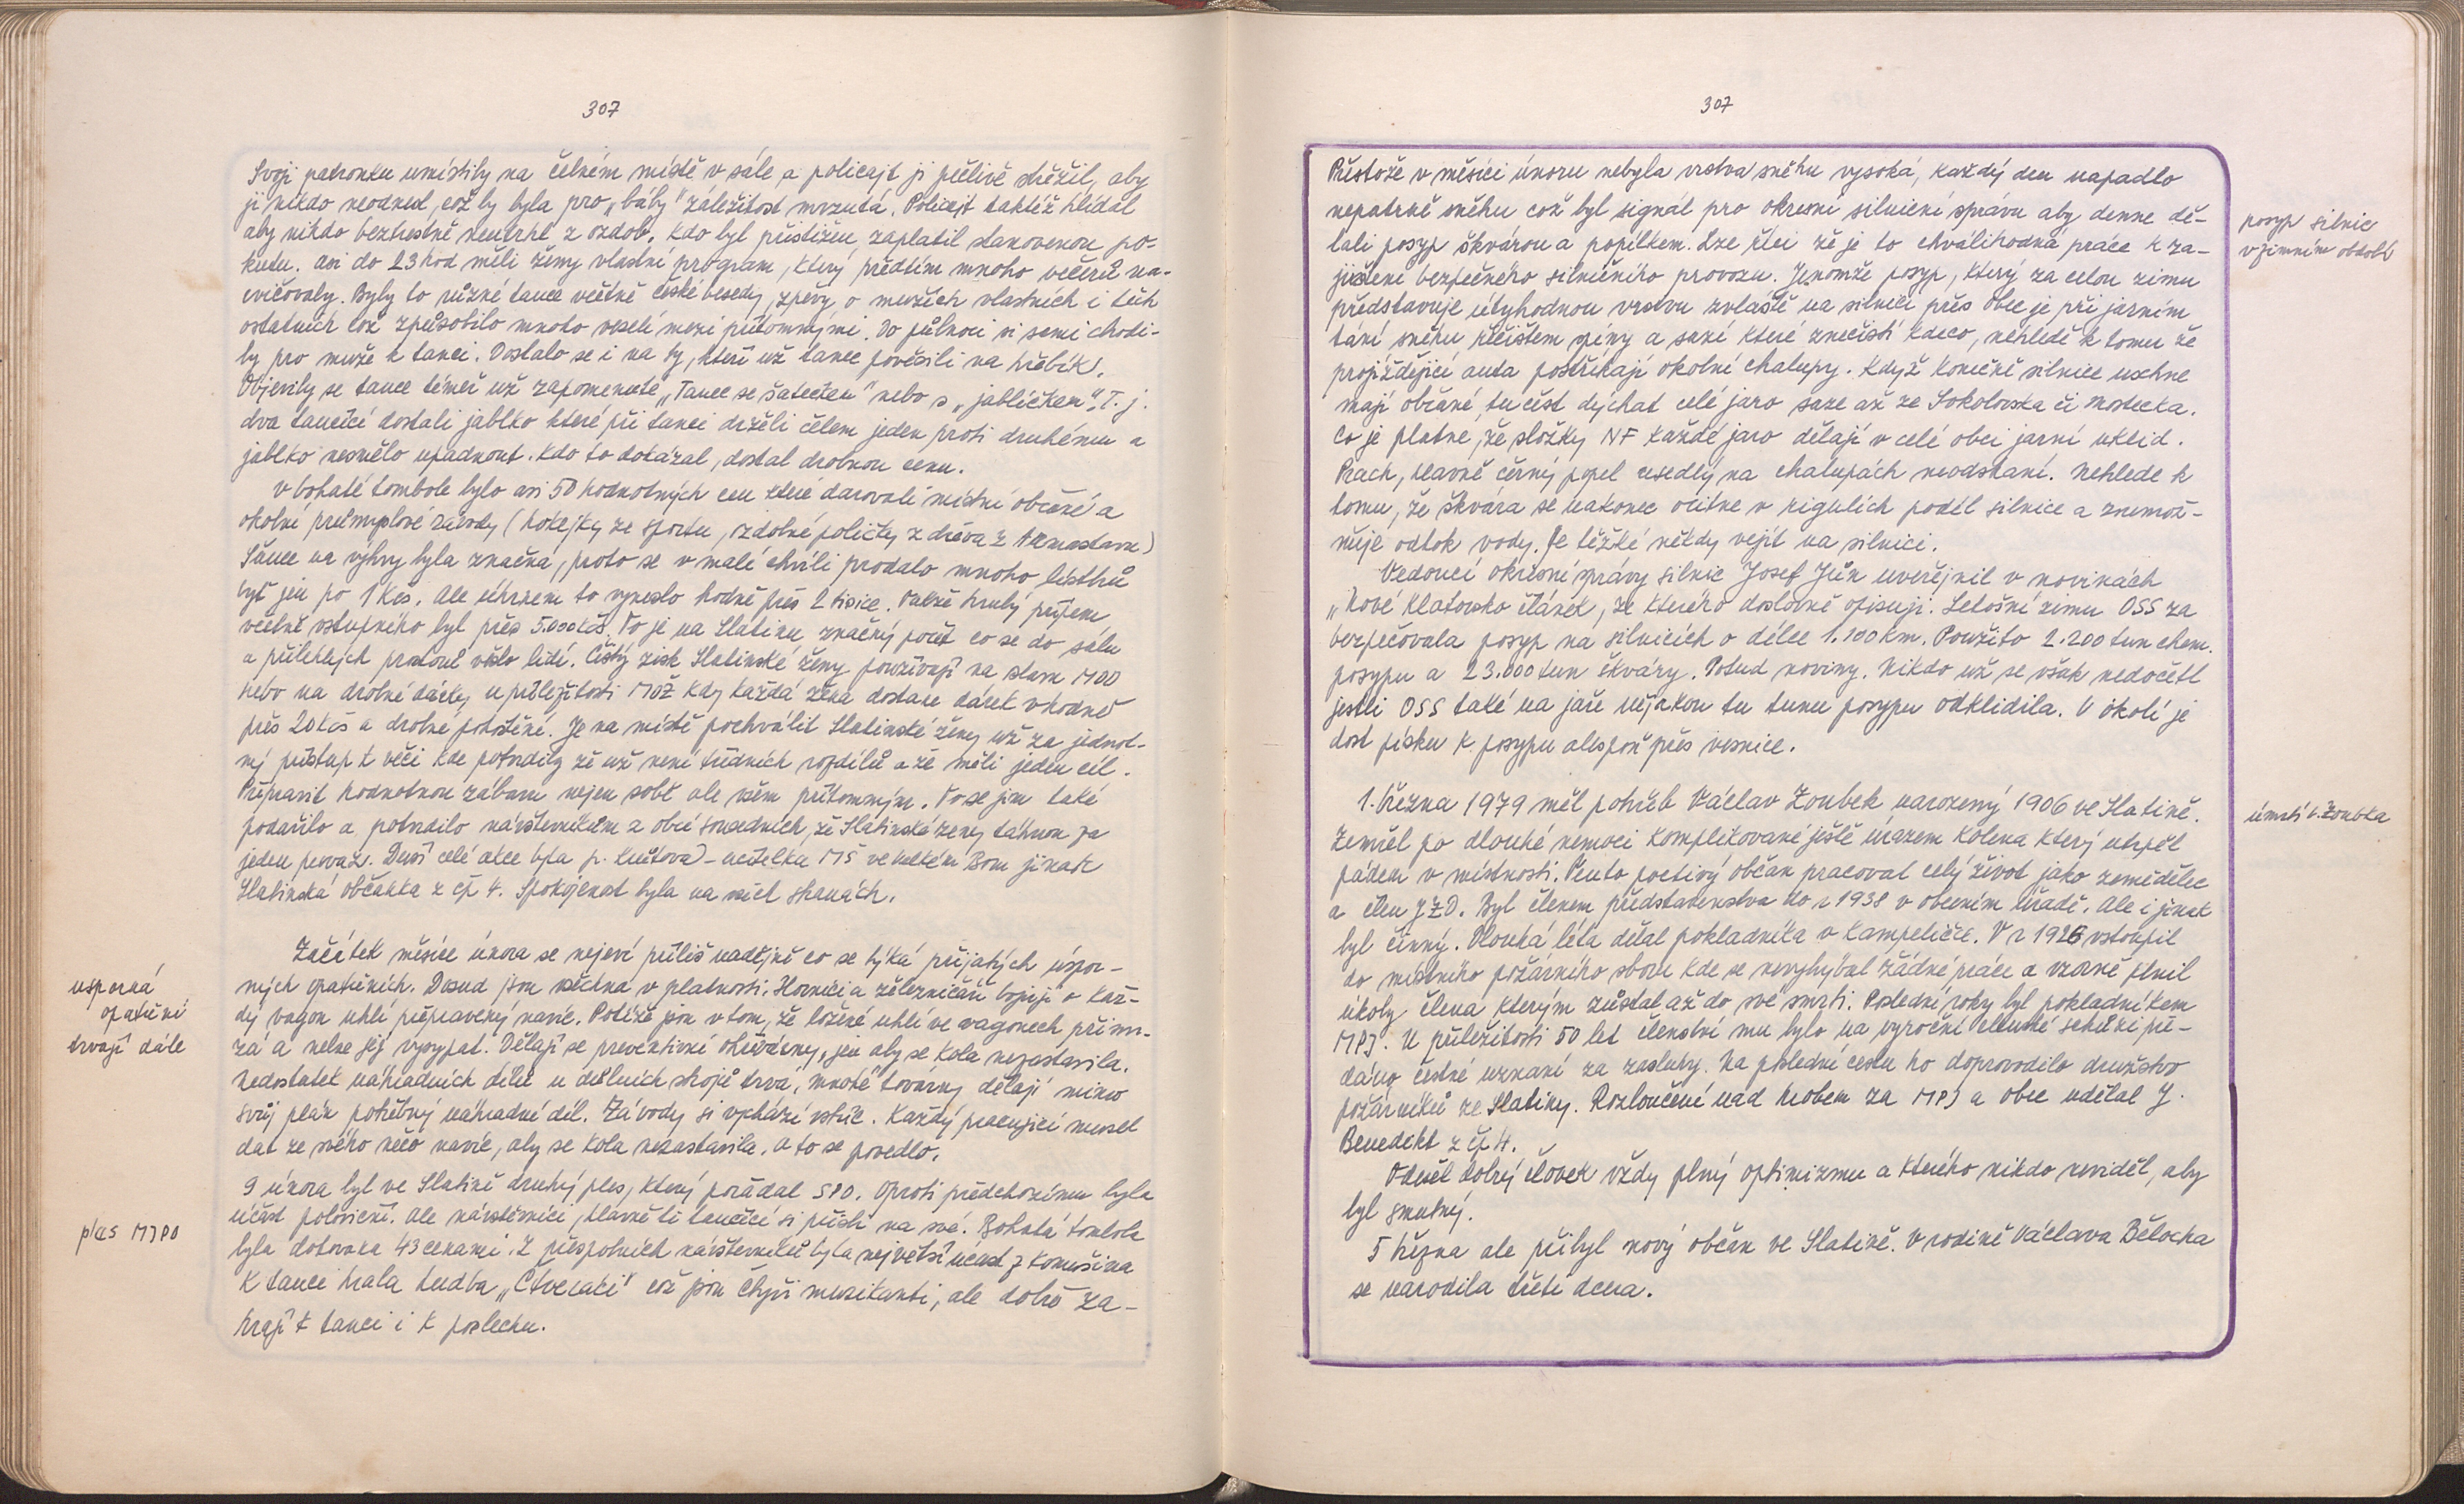 307
Svoji patronku umístily na čelném místě v sále a policajt ji pečlivě střežil, aby
ji nikdo neodnesl, což by byla pro „báby" záležitost mrzutá. Policajt taktéž hlídal
aby nikdo beztrestně neutrhl z ozdob. Kdo byl přistižen, zaplatil stanovenou po-
kutu. Asi do 23 hod měli ženy vlastní program, který předtím mnoho večerů na-
cvičovaly. Byly to různé tance včetně české besedy, zpěvy o mužích vlastních i těch
ostatních což způsobilo mnoho veselí mezi přítomnými. Do půlnoci si sami chodi-
ly pro muže k tanci. Dostalo se i na ty, kteří už tanec pověsili na hřebík.
Objevily se tance téměř už zapomenuté „Tanec se šátečkem" nebo s „jablíčkem". T. j.
dva tanečící dostali jablko které při tanci drželi čelem jeden proti druhému a
jablko nesmělo upadnout. Kdo to dokázal, dostal drobnou cenu.
V bohaté tombole bylo asi 50 hodnotných cen které darovali místní občané a
okolní průmyslové závody (hokejky ze sportu, ozdobné poličky z dřeva z Armastavu)
Šance na výhry byla značná, proto se v malé chvíli prodalo mnoho lístků
byť jen po 1 Kčs. Ale úhrnem to vyneslo hodně přes 2 tisíce. Takže hrubý příjem
včetně vstupného byl přes 5.000 Kčs. To je na Slatinu značný počet co se do sálu
a přilehlých prostoru vešlo lidí. Čistý zisk Slatinské ženy používají na oslavu MDD
nebo na drobné dárky u příležitosti MDŽ kdy každá žena dostane dárek v hodně
přes 20 Kčs a drobné pohoštění. Je na místě pochválit Slatinské ženy už za jednot-
ný přístup k věci kde potvrdily že už není třídních rozdílů a že měli jeden cíl.
Připravit hodnotnou zábavu nejen sobě ale všem přítomným. To se jim také
podařilo a potvrdilo návštěvníkům z obcí sousedních, že Slatinské ženy táhnou za
jeden provaz. Duší celé akce byla p. - učitelka MŠ ve Velkém Boru jinak
Slatinská občanka z čp 4. Spokojenost byla na všech stranách.
Začátek měsíce února se nejeví příliš nadějně co se týká přijatých úspor-
ných opatřeních. Dosud jsou všechna v platnosti. Horníci a železničáři bojují o kaž-
dý vagon uhlí přepravený navíc. Potíže jsou v tom, že ložené uhlí ve vagonech přimr-
zá a nelze jej vysypat. Dělají se preventivní ohřívárny, jen aby se kola nezastavila.
Nedostatek náhradních dílů u důlních strojů trvá, mnohé továrny dělají mimo
svůj plán potřebný náhradní díl. Závody si vychází vstříc. Každý pracující musel
dat ze svého něco navíc, aby se kola nezastavila. A to se povedlo.
9 února byl ve Slatině druhý ples, který pořádal SPO. Oproti předchozímu byla
účast poloviční. Ale návštěvníci, hlavně ti tančící si přišli na své. Bohatá tombola
byla dotována 43 cenami. Z přespolních návštěvníků byla největší účast z Komušína
K tanci hrála hudba „Čtveráci" což jsou čtyři muzikanti, ale dobře za-
hrají k tanci i k poslechu.
usporná
opatření
trvají dále
ples MJPO
307
Přestože v měsíci únoru nebyla vrstva sněhu vysoká, každý den napadlo
nepatrně sněhu což byl signál pro okresní silniční správu aby denne dě-
lali posyp škvárou a popílkem. Lze říci že je to chválihodná práce k za-
jištění bezpečného silničního provozu. Jenomže posyp, který za celou zimu
představuje úctyhodnou vrstvu zvlaště na silnici přes obec je při jarním
tání sněhu řečištem špíny a sazí které znečistí kdeco, nehledě k tomu že
projíždějící auta postříkají okolní chalupy. Když konečně silnice uschne
mají občané tu čest dýchat celé jaro saze až ze Sokolovska či Mostecka.
Co je platné, že složky NF každé jaro dělají v celé obci jarní uklid.
Prach, hlavně černý popel usedlý na chalupách neodstraní. Nehlede k
tomu, že škvára se nakonec ocitne v rigulích podél silnice a znemož-
ňuje odtok vody. Je těžké někdy vejít na silnici.
Vedoucí okresní správy silnic Josef Jůn uveřejnil v novinách
„Nové Klatovsko článek, ze kterého doslovně opisuji. Letošní zimu OSS za
bezpečovala posyp na silnicích o délce 1.100 km. Použito 2.200 tun chem.
posypu a 23.000 tun škváry. Potud noviny. Nikdo už se však nedočetl
jestli OSS také na jaře nějakou tu tunu posypu odklidila. V okolí je
dost písku k posypu alespoň přes vesnice.
1. března 1979 měl pohřeb Václav Zoubek narozený 1906 ve Slatině.
Zemřel po dlouhé nemoci komplikované ještě úrazem kolena který utrpěl
pádem v místnosti. Tento poctivý občan pracoval celý život jako zemědělec
a člen JZD. Byl členem představenstva do r 1938 v obecním úřadě. Ale i jinak
byl činný. Dlouhá léta dělal pokladníka v Kampeličce. V r 1926 vstoupil
do místního požárního sboru kde se nevyhýbal žádné práce a vzorně plnil
úkoly člena kterým zůstal až do své smrti. Poslední roky byl pokladníkem
MPJ. U příležitosti 50 let členství mu bylo na vyroční členské schůzi pře-
dáno čestné uznaní za zasluhy. Na poslední cestu ho doprovodilo družstvo
požárníků ze Slatiny. Rozloučení nad hrobem za MPJ a obec udělal J.
Benedikt z čp 4.
Odešel dobrý člověk vždy plný optimizmu a kterého nikdo neviděl, aby
byl smutný.
5 března ale přibyl nový občan ve Slatině. V rodině Václava Bělocha
se narodila třetí dcera.
posyp silnic
v zimním období
úmrtí V. Zoubka